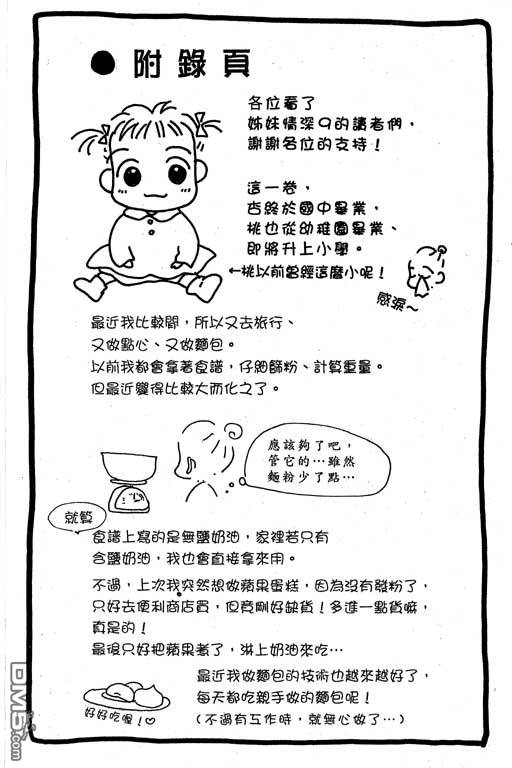 ●附錄頁
各位看了
姊妹情深9的讀者們，
謝謝各位的支持！
這一卷，
杏終於國中畢業，
桃也從幼稚園畢業、
即將升上小學。
←桃以前曾經這麼小呢！
感淚～
最近我比較閒，所以又去旅行、
又做點心、又做麵包。
以前我都會拿著食譜，仔細篩粉、計算重量。
但最近變得比較大而化之了。
應該夠了吧，
管它的…雖然
麵粉少了點…
就算
食譜上寫的是無鹽奶油，家裡若只有
含鹽奶油，我也會直接拿來用。
不過，上次我突然想做蘋果蛋糕，因為沒有發粉了，
只好去便利商店買，但竟剛好缺貨！多進一點貨嘛，
真是的！
最後只好把蘋果煮了，淋上奶油來吃…
最近我做麵包的技術也越來越好了，
每天都吃親手做的麵包呢！
（不過有工作時，就無心做了…）
好好吃喔！♡
DM5.com